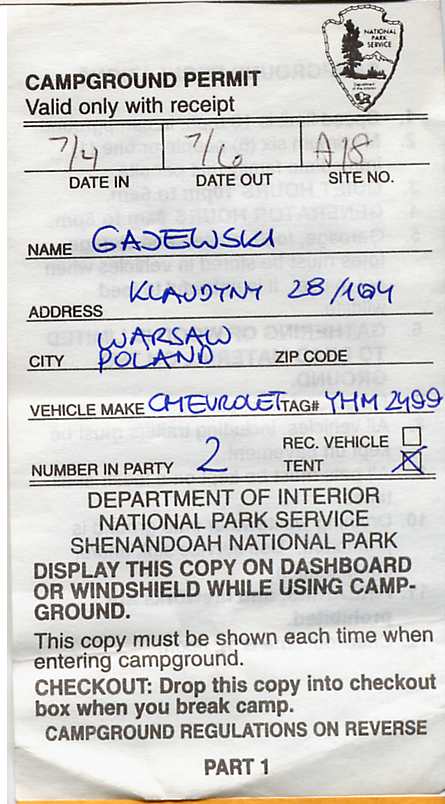 NATIONAL
PARK
SERVICE
Department
of the Interior
CAMPGROUND PERMIT
Valid only with receipt
7/4 7/6 A18
DATE IN DATE OUT SITE NO.
NAME GAJEWSKI
ADDRESS KLAUDYNY 28/104
WARSAW
CITY POLAND ZIP CODE
VEHICLE MAKE CHEVROLET TAG# YHM 2499
REC. VEHICLE
NUMBER IN PARTY 2 TENT
DEPARTMENT OF INTERIOR
NATIONAL PARK SERVICE
SHENANDOAH NATIONAL PARK
DISPLAY THIS COPY ON DASHBOARD
OR WINDSHIELD WHILE USING CAMP-
GROUND.
This copy must be shown each time when
entering campground.
CHECKOUT: Drop this copy into checkout
box when you break camp.
CAMPGROUND REGULATIONS ON REVERSE
PART 1